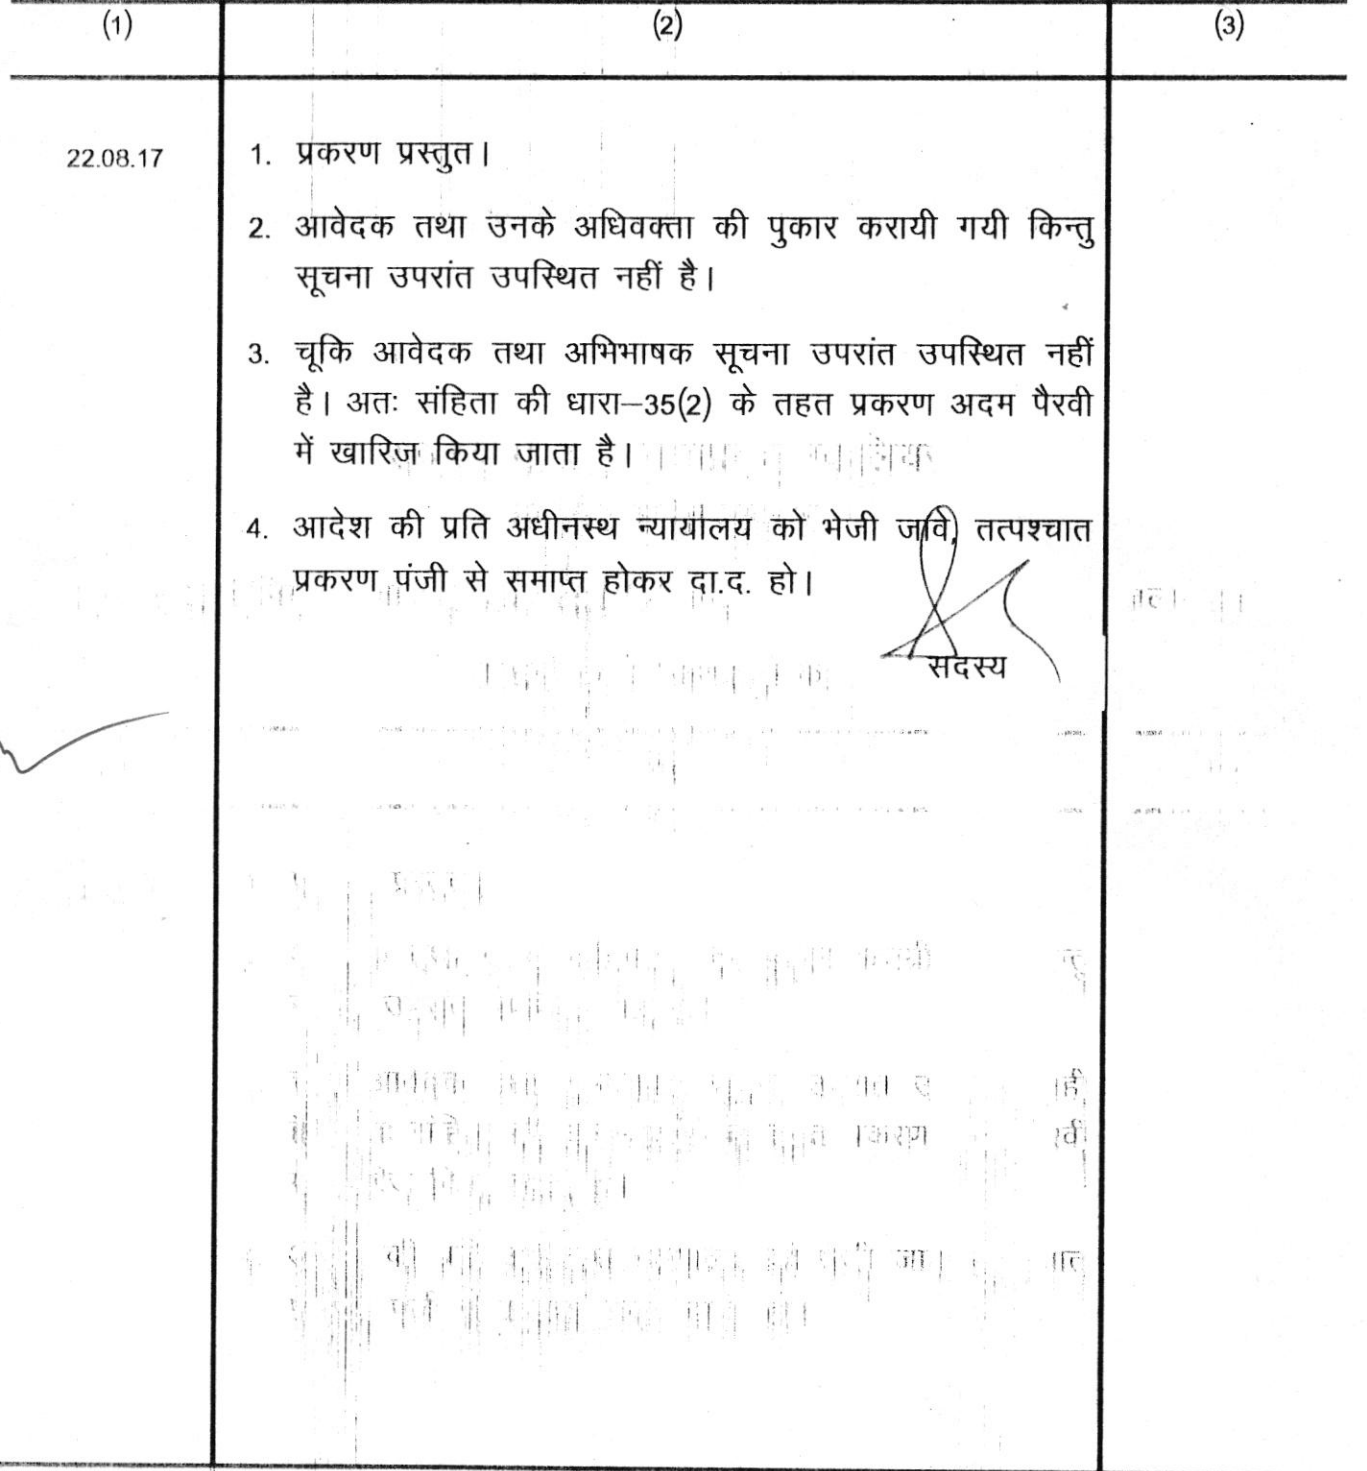 (1) (2) (3)
22.08.17 1. प्रकरण प्रस्तुत।
2. आवेदक तथा उनके अधिवक्ता की पुकार करायी गयी किन्तु
सूचना उपरांत उपस्थित नहीं है।
3. चूकि आवेदक तथा अभिभाषक सूचना उपरांत उपस्थित नहीं
है। अतः संहिता की धारा–35(2) के तहत प्रकरण अदम पैरवी
में खारिज किया जाता है।
4. आदेश की प्रति अधीनस्थ न्यायालय को भेजी जावे, तत्पश्चात
प्रकरण पंजी से समाप्त होकर दा.द. हो।
सदस्य